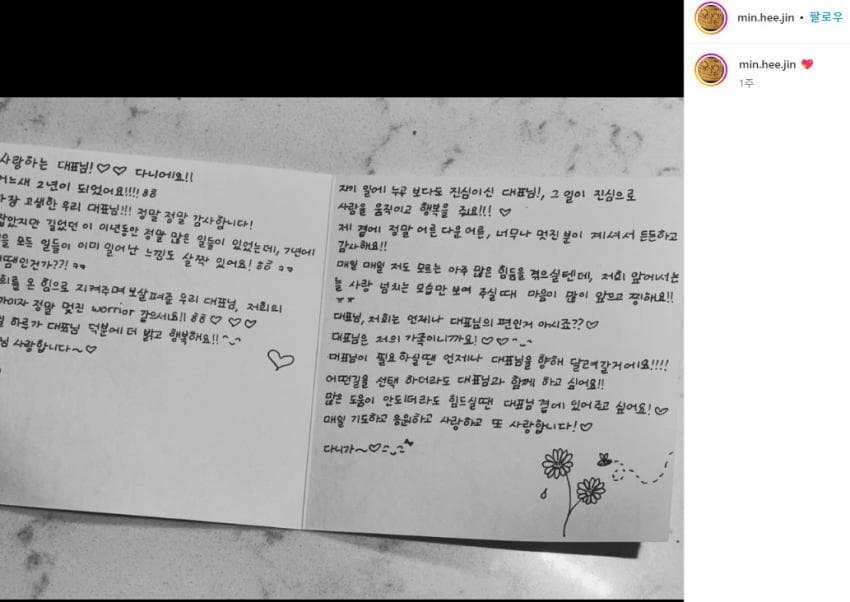 사랑하는 대표님!♡♡ 다니에요!!
어느새 2년이 되었어요!!!! ㅎㅎ
가장 고생한 우리 대표님!!! 정말 정말 감사합니다!
짧았지만 길었던 이 이년동안 정말 많은 일들이 있었는데, 7년에
모든 일들이 이미 일어난 느낌도 살짝 있어요! ㅎㅎ ㅋㅋ
땜인건가??! ㅋㅋ
희를 온 힘으로 지켜주며 보살펴준 우리 대표님, 저희의
이자 정말 멋진 worrior 같으세요!! ㅎㅎ ♡ ♡ ♡
하루가 대표님 덕분에 더 밝고 행복해요!! ^_^
님 사랑합니다~♡
자기 일에 누구 보다도 진심이신 대표님!, 그 일이 진심으로
사람을 움직이고 행복을 줘요!!! ♡
제 곁에 정말 어른 다운 어른, 너무나 멋진 분이 계셔서 든든하고
감사해요!!
매일 매일 저도 모르는 아주 많은 힘듬을 겪으실텐데, 저희 앞에서는
늘 사랑 넘치는 모습만 보여 주실때 마음이 많이 아프고 찡해요!!
ㅠㅠ
대표님, 저희는 언제나 대표님의 편인거 아시죠??♡
대표님은 저의 가족이니까요! ♡♡^_^
대표님이 필요하실땐 언제나 대표님을 향해 달려갈거에요!!!!
어떤길을 선택 하더라도 대표님과 함께 하고 싶어요!!
많은 도움이 안되더라도 힘드실땐 대표님 곁에 있어주고 싶어요!♡
매일 기도하고 응원하고 사랑하고 또 사랑합니다!♡
다니가~♡
min.hee.jin • 팔로우
min.hee.jin 💖
1주